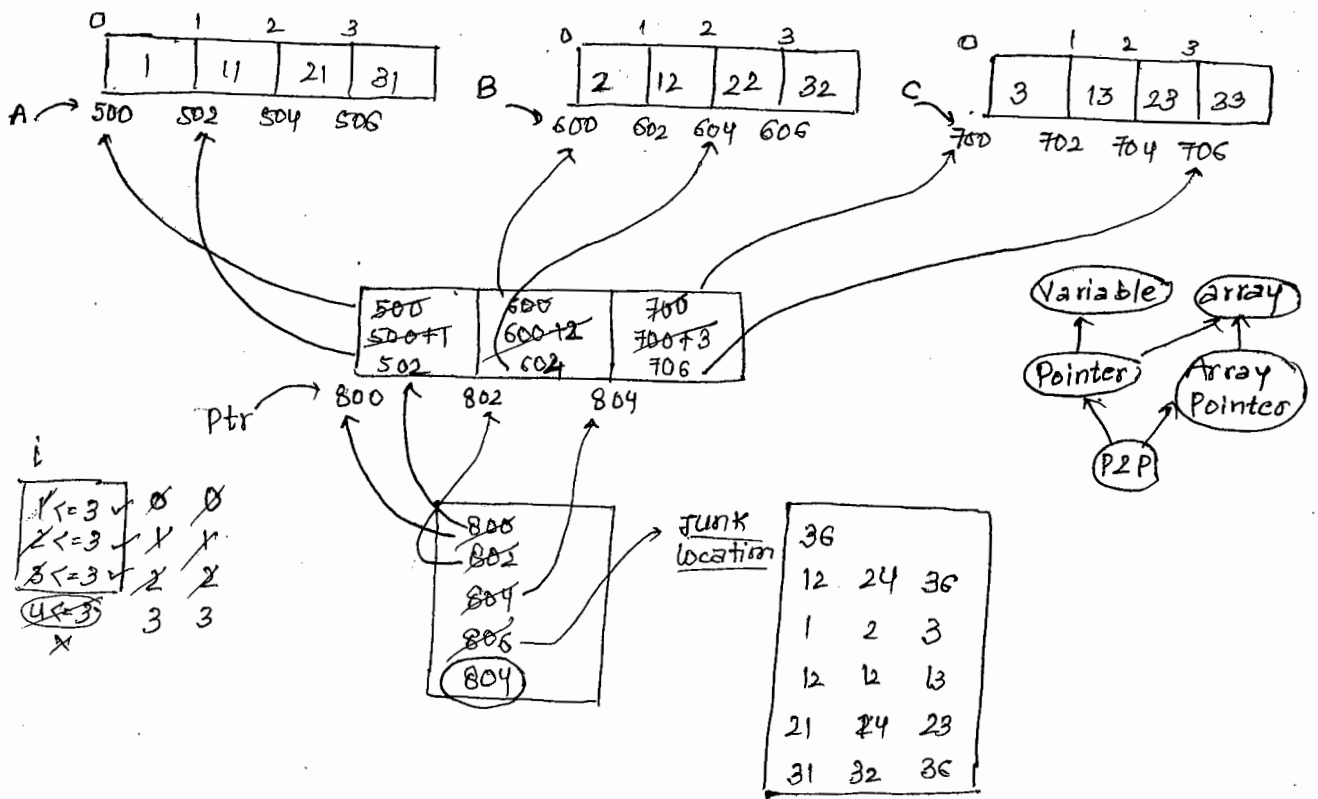 0 1 2 3
1 11 21 31
A 500 502 504 506
0 1 2 3
2 12 22 32
B 600 602 604 606
0 1 2 3
3 13 23 33
C 700 702 704 706
500 600 700
500+1 600+2 700+3
502 604 706
Ptr 800 802 804
Variable array
Pointer Array Pointer
P2P
i
1<=3 0 0
2<=3 1 1
3<=3 2 2
4<=3 3 3
800
802
804
806
804
Junk
location
36
12 24 36
1 2 3
12 12 13
21 24 23
31 32 36